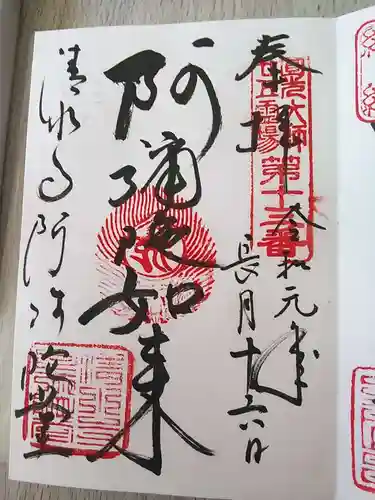 奉拝
圓光大師
二十五霊場
第十三番
令和元年
長月十六日
阿弥陀如来
清水寺阿弥陀堂